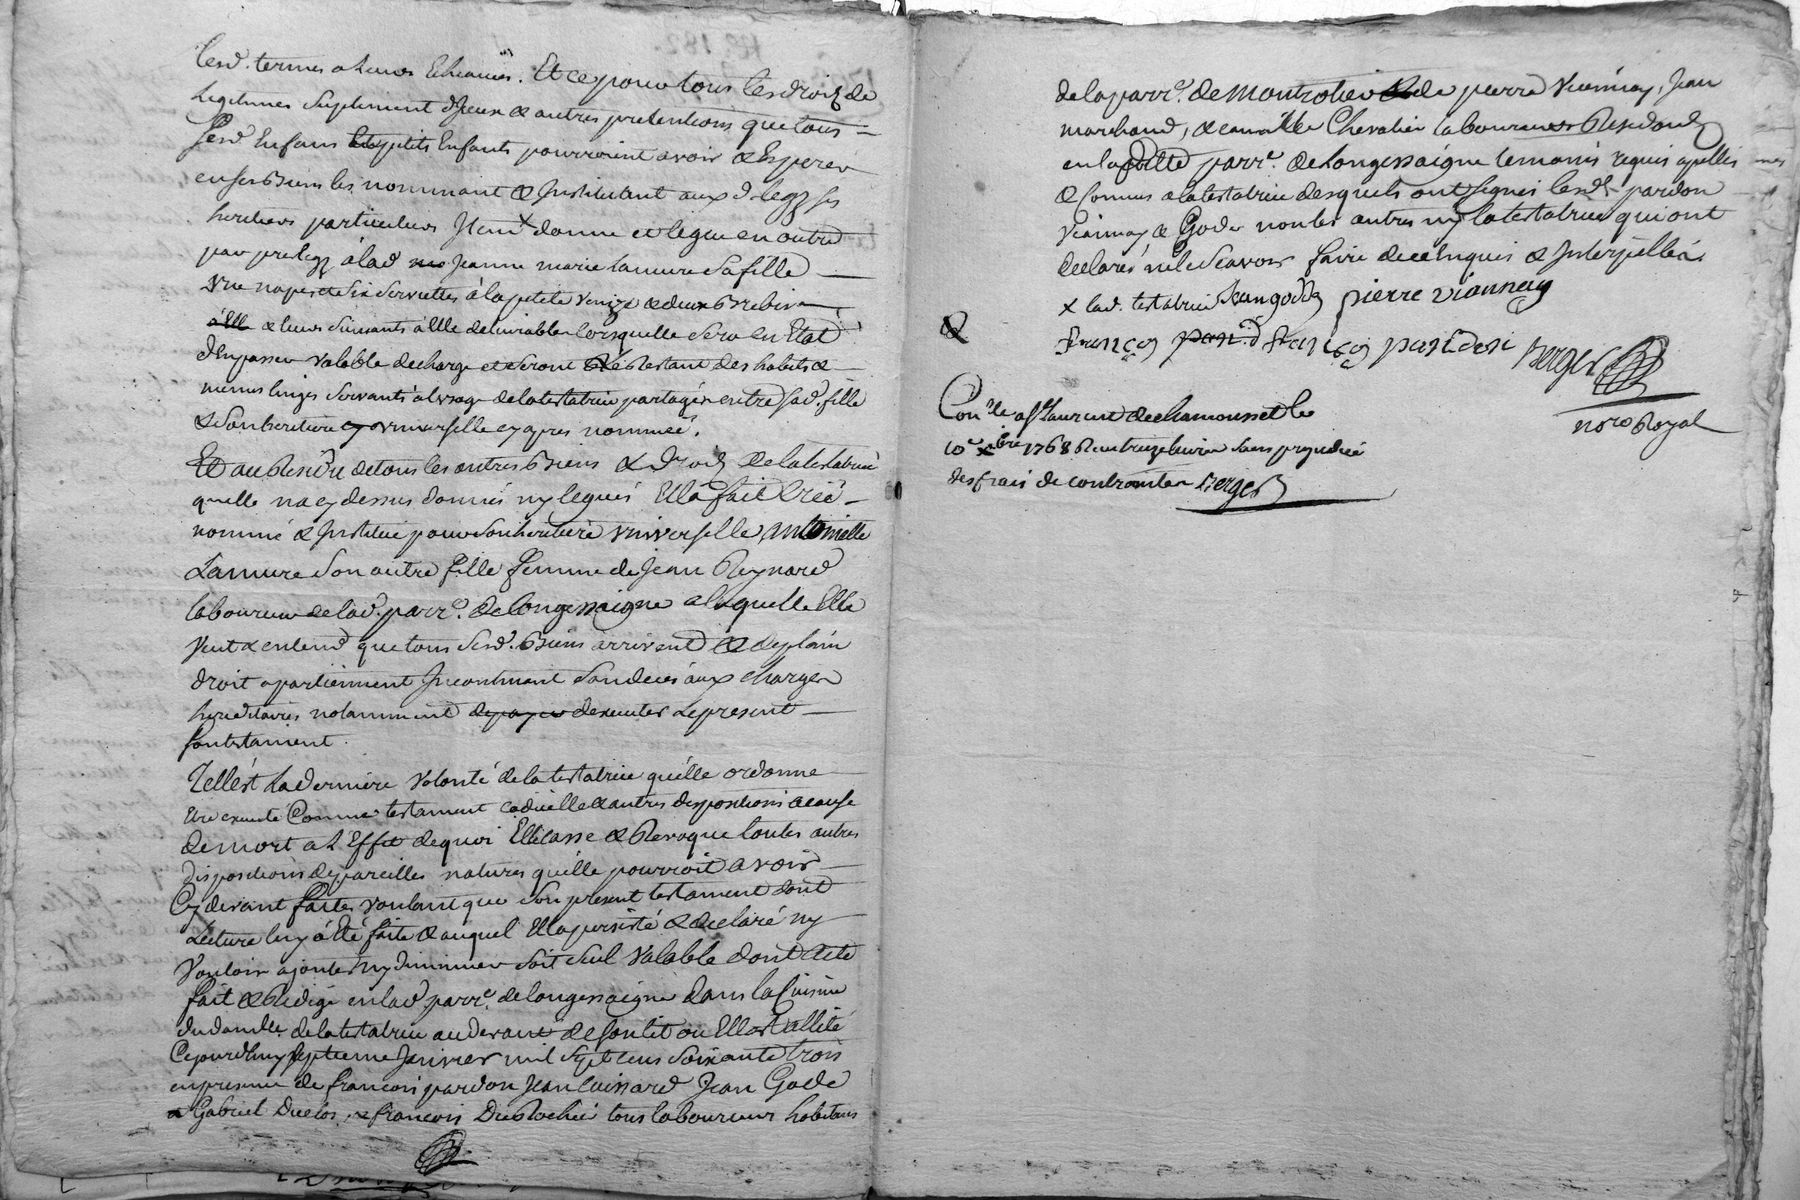 lesd. termes a leurs Echeances. Et ce pour tous les droits de
legitimes suplement d'Iceux & autres pretentions que tous
Sesd Enfans & petits Enfants pourroient avoir & Esperer
en ses Biens les nommant & Instituant aux d. legs ses
heritiers particuliers Item donne et legue en outre
par prelegs à lad Jeanne marie Lamure Sa fille
une nape et Six Serviettes à la petite Venize & deux Brebis
& leurs Suivants à Elle delivrables lorsquelle Sera en Etat
d'En passer valable decharge et Seront le Restant des habits &
menus linges Servants à l'usage de la testatrice partagés entre Sad. fille
& Son heritiere universelle cy apres nommée.
Et au Residu de tous les autres Biens & droits de la testatrice
quelle na cy dessus donnés ny legués Elle a fait Créé
nommé & Institué pour Son heritiere universelle antoinette
Lamure Son autre fille femme de Jean Reynard
laboureur de lad. parr.e de Longessaigne a laquelle Elle
veut & entend que tous Sesd. Biens arrivent & de plain
droit apartiennent Incontinent Son decés aux charges
hereditaires notamment de payer d'executer Le present
Son testament.
Telle est La derniere volonté de la testatrice qu'elle ordonne
Etre executé Comme testament codicille & autres dispositions a cause
de mort a L'Effet de quoi Elle casse & Revoque toutes autres
dispositions de pareilles natures qu'elle pourroit avoir
Cy devant faites voulant que Son present testament dont
Lecture luy à Eté faite & auquel Elle a persisté & declaré ny
vouloir ajouter ny diminuer Soit Seul valable dont acte
fait & Redigé en lad parr.e de Longessaigne dans la Cuisine
du domlle. de la testatrice au devant de Son lit ou Elle est allitée
Cejourdhuy Septieme Janvier mil Sept cens Soixante trois
en presence de francois pardon Jean Cuissard Jean Gode
& Gabriel Duclos & francois DuRochier tous laboureurs habitans
de la parr.e de Montrotier & de pierre Viannay, Jean
marchand, & Chevalier laboureurs Residents
en la ditte parr.e de Longessaigne temoins requis apellés
& Connus a la testatrice desquels ont Signés lesd. pardon
Viannay & Gode non les autres ny la testatrice qui ont
declarés ne le Scavoir faire de ce Enquis & Interpellés.
x lad. testatrice Jean godde pierre viannay
&
françois pardon Berger
no.re Royal
Con.lé a St Laurent de chamousset le
10e xbre 1768 Reçu treize livres Sans prejudice
des frais de contrainte Berger